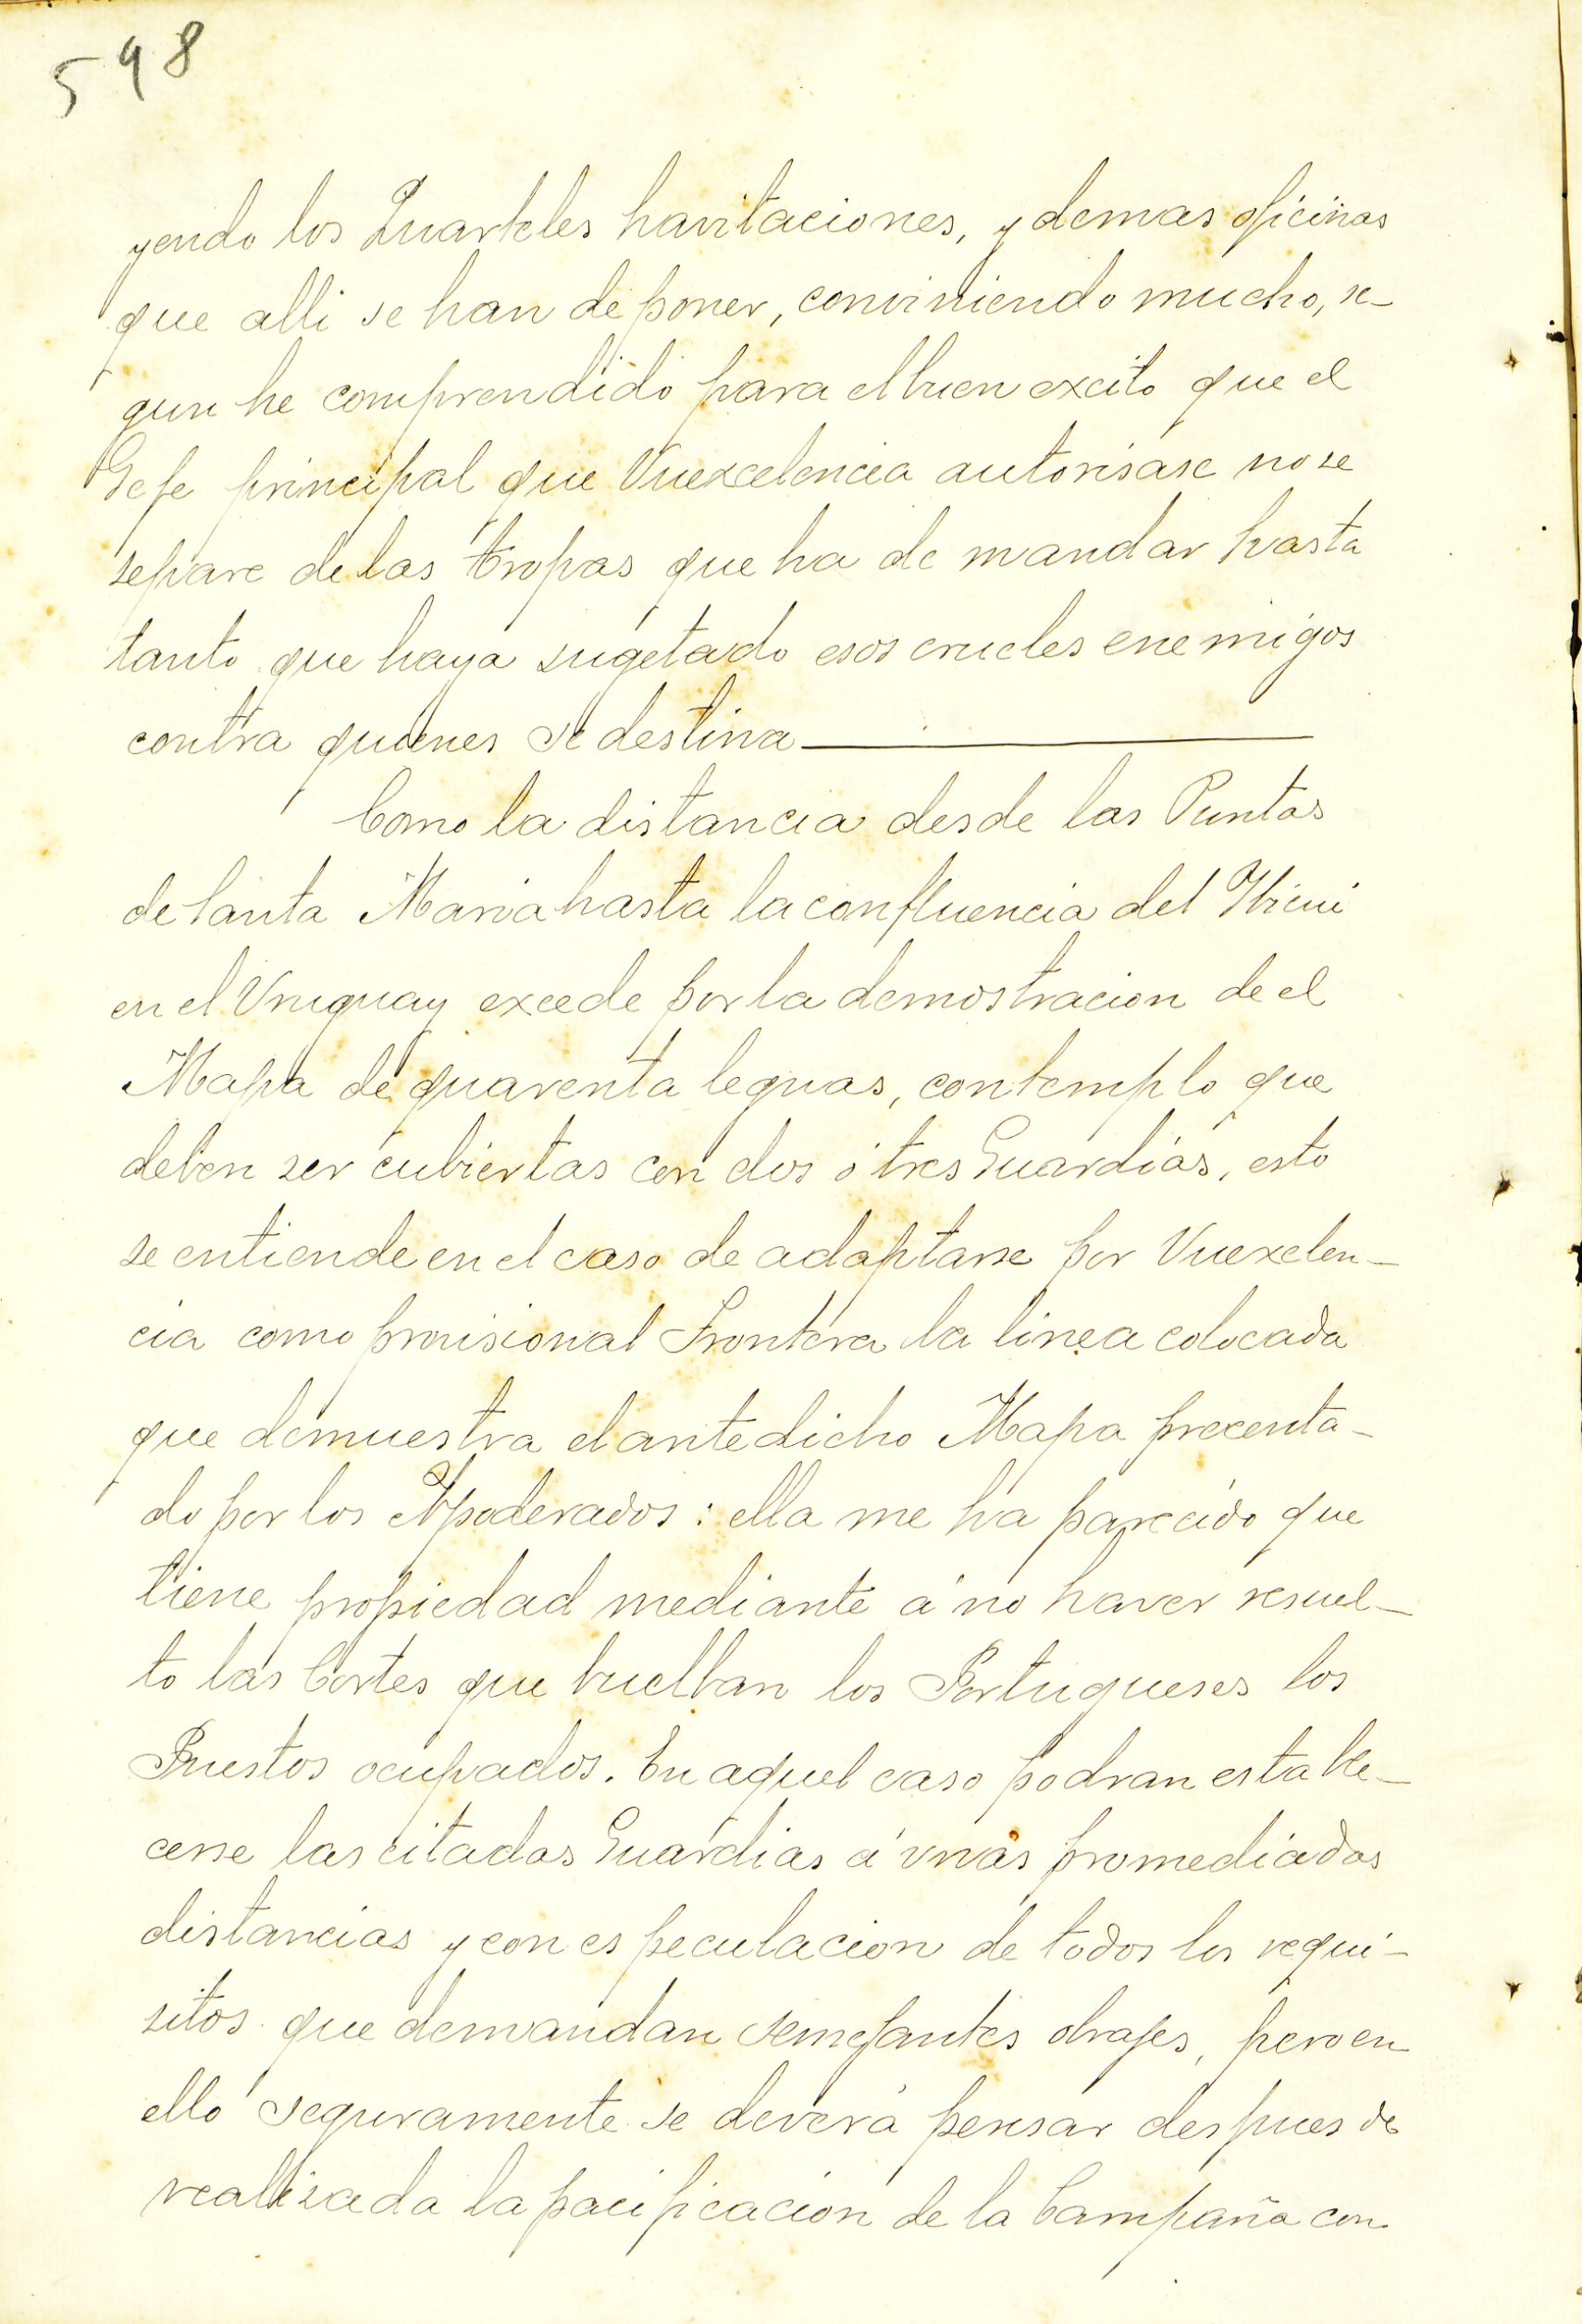 598
yendo los Quarteles havitaciones, y demas oficinas
que alli se han de poner, conviniendo mucho, se-
gun he comprendido para el buen excito que el
Gefe principal que Vuexcelencia autorisase no se
separe de las tropas que ha de mandar hasta
tanto que haya sugetado esos crueles enemigos
contra quienes se destina
Como la distancia desde las Puntas
de Santa Maria hasta la confluencia del Ibicui
en el Vruguay excede por la demostracion de el
Mapa de quarenta leguas, contemplo que
deben ser cubiertas con dos ó tres Guardias, esto
se entiende en el caso de adaptarse por Vuexelen-
cia como provisional Frontera la linea colocada
que demuestra el antedicho Mapa precenta-
do por los Apoderados: ella me ha parecido que
tiene propiedad mediante á no haver resuel-
to las Cortes que buelban los Portugueses los
Puestos ocupados. En aquel caso podran estable-
cerse las citadas Guardias á vnas promediadas
distancias y con especulacion de todos los requi-
sitos que demandan semejantes obrajes, pero en
ello seguramente se deverá pensar despues de
realizada la pacificacion de la Campaña con